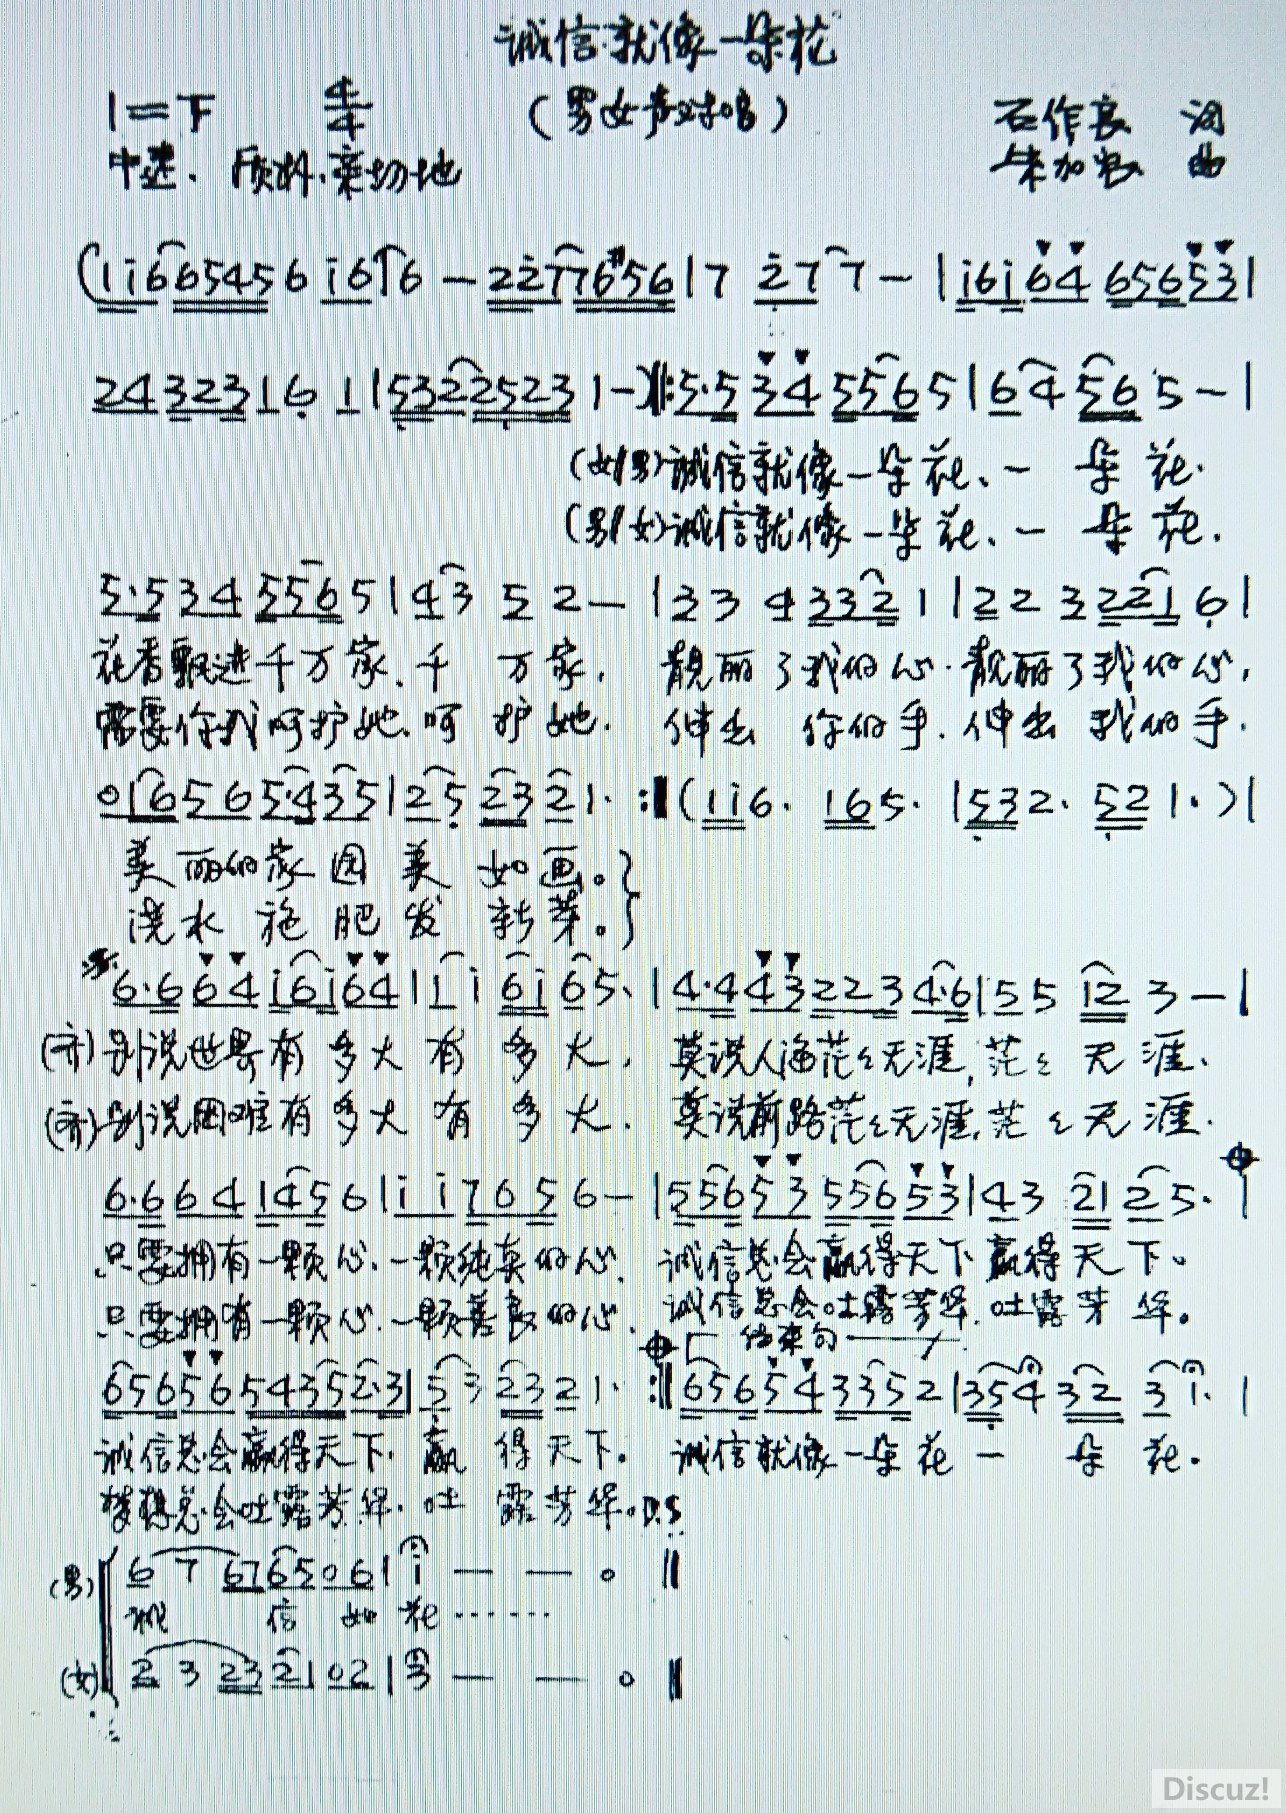 诚信就像一朵花
1=F 4/4 (男女声对唱) 石作良 词
中速、质朴、亲切地 朱加农 曲
(1i665456 i6i6 — 22777656|7 277 — |i6i64 65653|
2432316 1|53225231—)‖:5·534 5565|64 56 5—|
(女/男)诚信就像一朵花、一 朵 花.
(男/女)诚信就像一朵花、一 朵 花.
5·534 5565|43 5 2—|33 4 3321|22 3 2216|
花香飘进千万家、千 万家, 靓丽了我的心.靓丽了我的心,
需要你我呵护她.呵护她. 伸出 你的手.伸出 我的手.
01656 5·435|25 23 21· :‖(1i6· 165· |532· 521·)|
美丽的家园美如画。
浇水施肥发新芽。
6·664 i6i64|1i 6i 65·|4·443 2234·6|55 12 3—|
(齐)别说世界有多大有多大, 莫说人海茫々无涯,茫々无涯.
(齐)别说困难有多大有多大. 莫说前路茫々无涯,茫々无涯.
6·664 1456|ii7656—|55653 55653|43 21 25·|
只要拥有一颗心、一颗纯真的心、 诚信总会赢得天下赢得天下。
只要拥有一颗心.一颗善良的心. 诚信总会吐露芳华.吐露芳华。
结束句
65656 54352·3|53 23 21· :‖65654 3352|354 32 31·|
诚信总会赢得天下.赢得天下。 诚信就像一朵花一朵花.
总会吐露芳华.吐露芳华。D.S
(男) 67 6765 06|i — — 0‖
诚 信 如花……
(女) 23 2321 02|3 — — 0‖
Discuz!